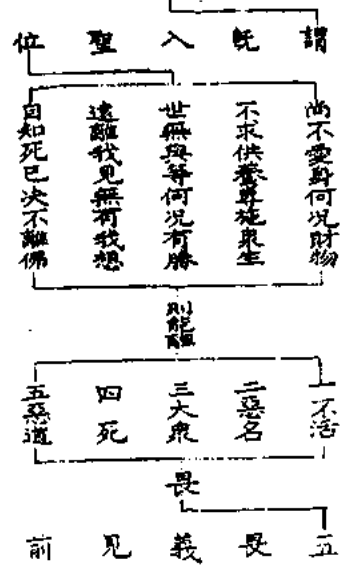 謂既入聖位
尚不愛身何况財物
不求供養專施衆生
世無與等何况有勝
遠離我見無有我想
自知死已决不離佛
則能離
一不活
二惡名
三大衆
四死
五惡道
畏
五畏義見前